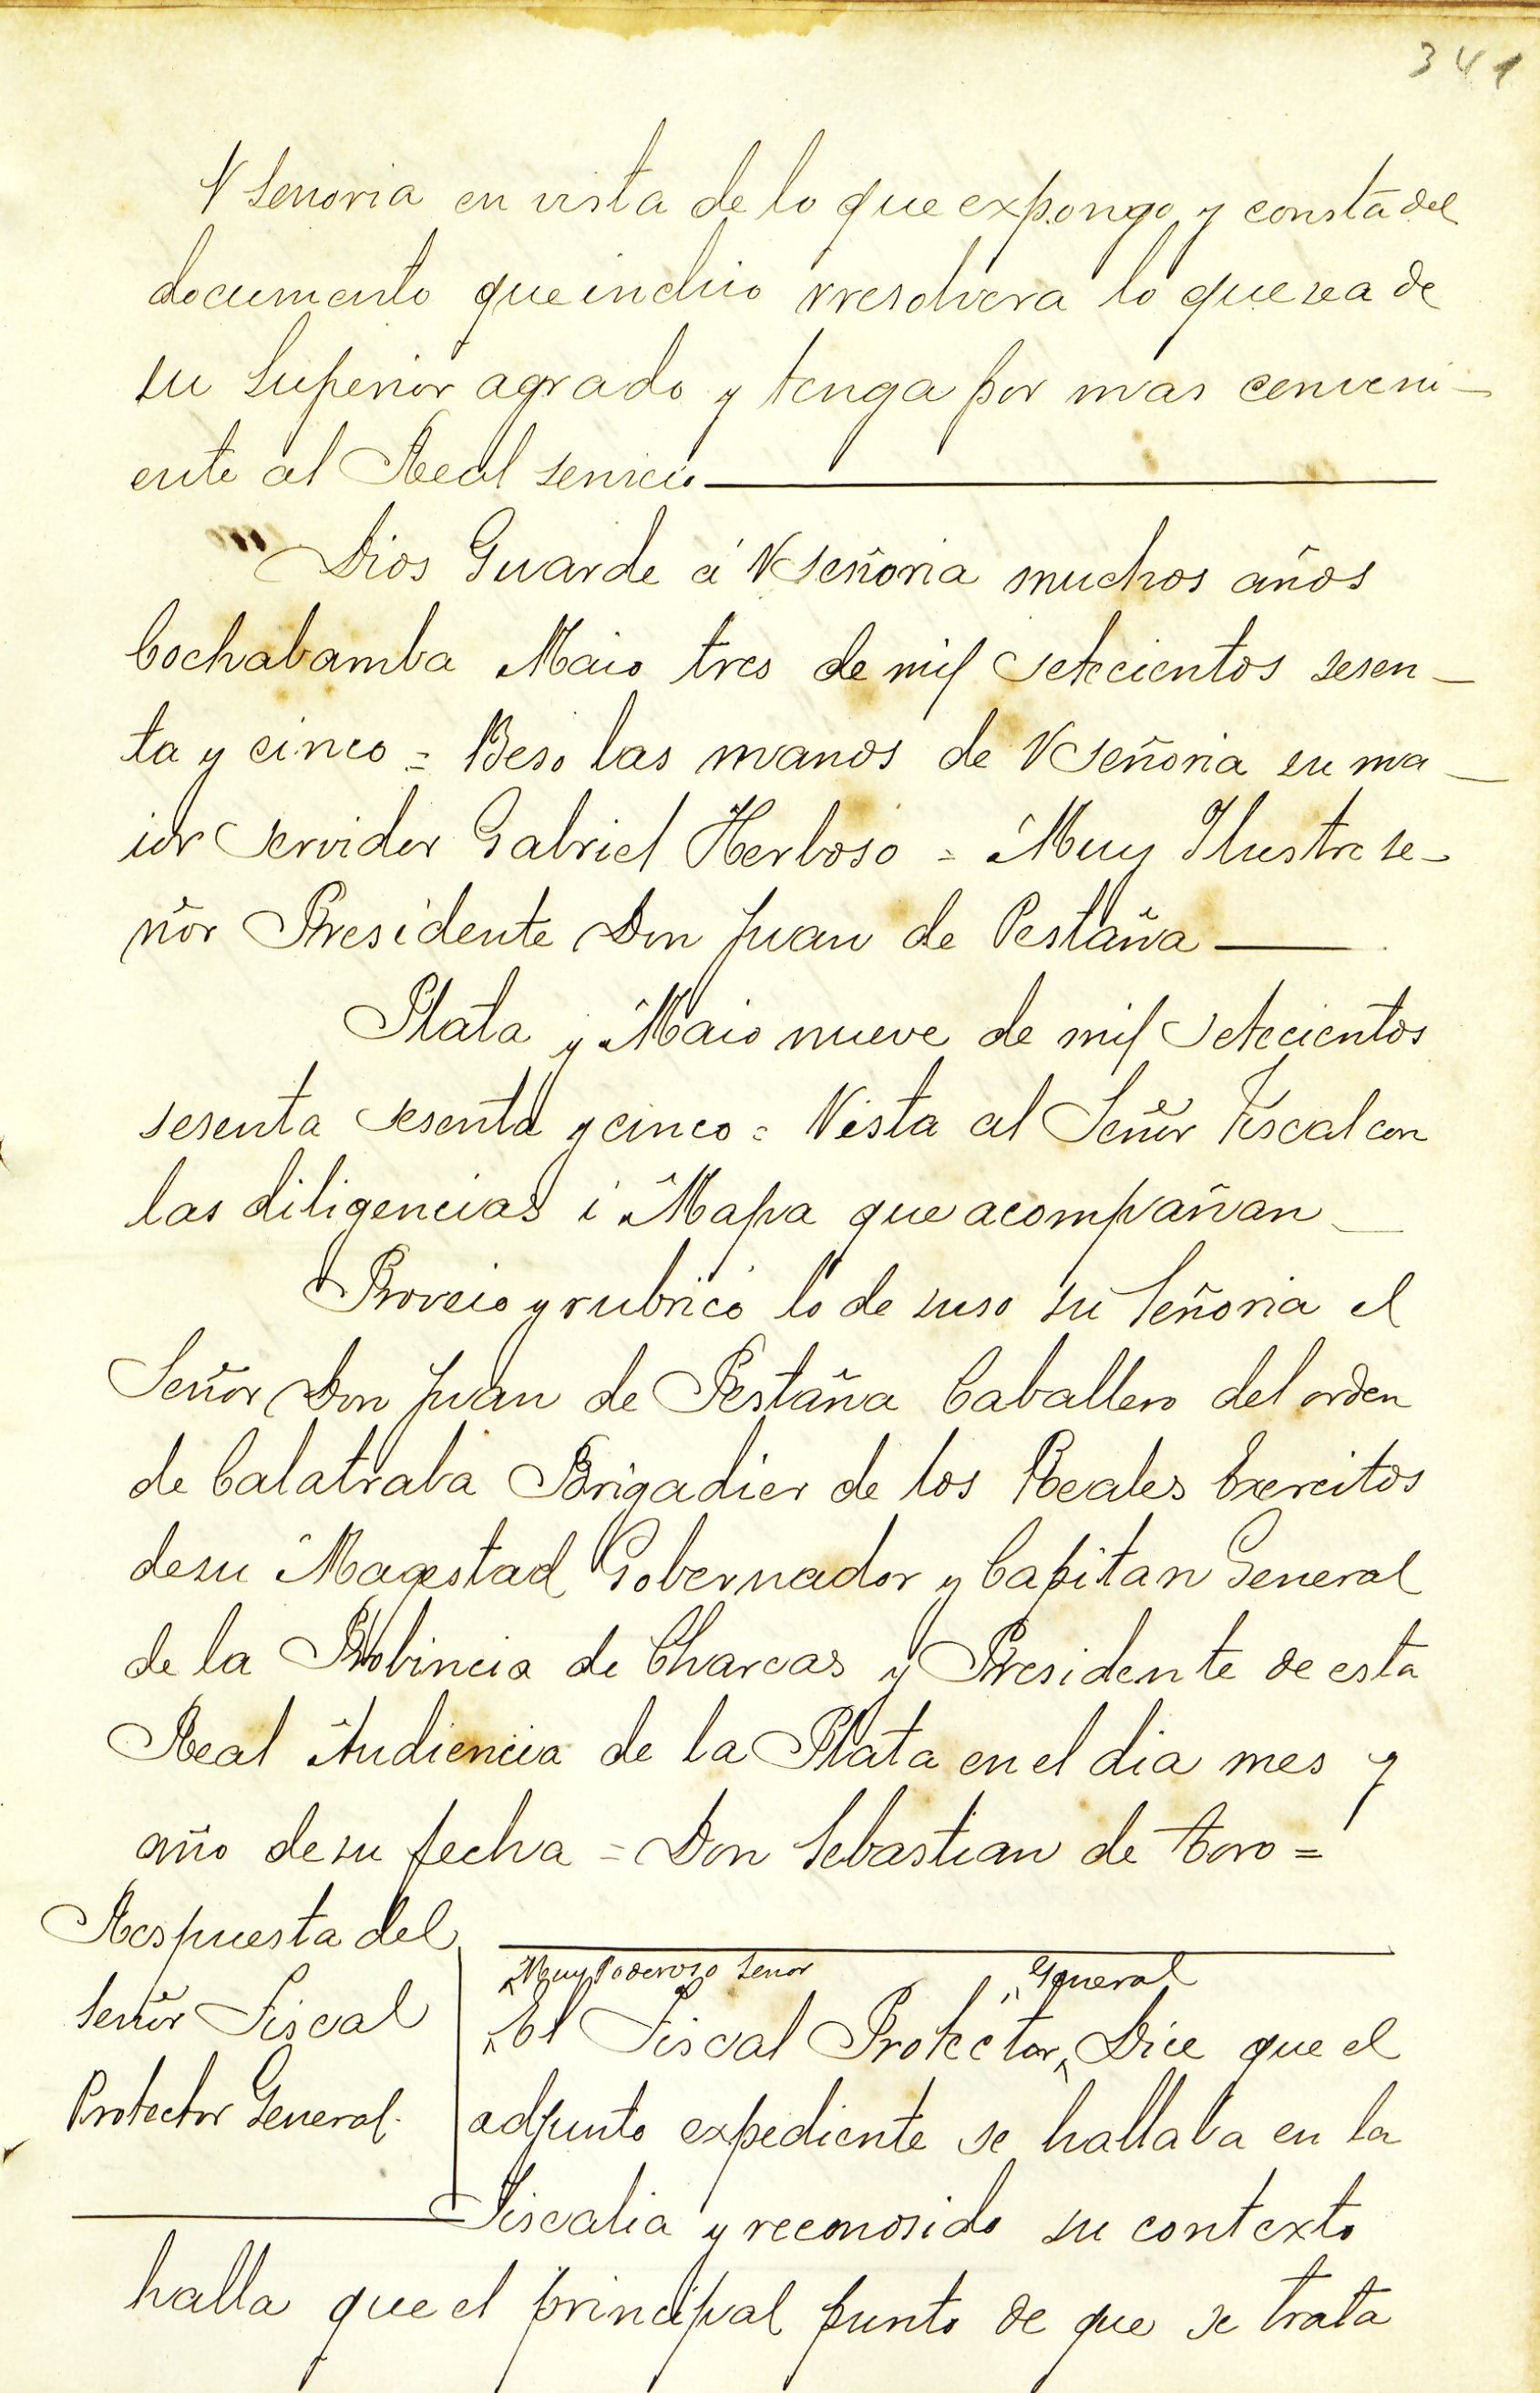 341
V Senoria en vista de lo que expongo y consta del
documento que incluio rresolvera lo que sea de
su Superior agrado y tenga por mas conveni-
ente al Real servicio
Dios Guarde á V Señoria muchos años
Cochabamba Maio tres de mil setecientos sesen-
ta y cinco = Beso las manos de V Señoria su ma-
ior servidor Gabriel Herboso = Muy Ilustre se-
ñor Presidente Don Juan de Pestaña
Plata y Maio nueve de mil setecientos
sesenta sesenta y cinco = Vista al Señor Fiscal con
las diligencias i Mapa que acompañan
Proveio y rubricó lo de suso su Señoria el
Señor Don Juan de Pestaña Caballero del orden
de Calatraba Brigadier de los Reales Exercitos
de su Magestad Gobernador y Capitan General
de la Probincia de Charcas y Presidente de esta
Real Audiencia de la Plata en el dia mes y
año de su fecha = Don Sebastian de toro =
Respuesta del
señor Fiscal
Protector General.
Muy Poderoso Senor General
El Fiscal Protector, Dice que el
adjunto expediente se hallaba en la
Fiscalia y reconosido su contexto
halla que el principal punto de que se trata